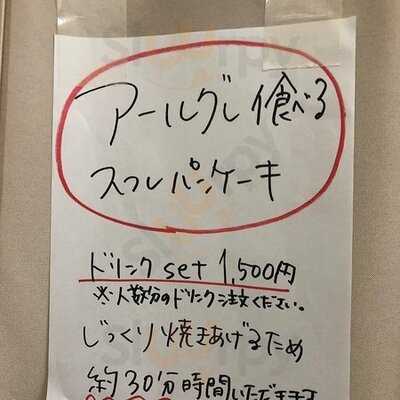 アールグレ食べる
スフレパンケーキ
ドリンクset 1,500円
※人数分のドリンクご注文ください。
じっくり焼きあげるため
約30分時間いただきます